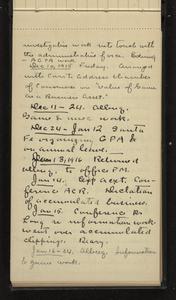 investigative work into touch with
the administrative force.
- AGPA work
Dec 10, 1915 Friday. Arranged
with Can't. Address Chamber
of Commerce on "Value of Game
as a Business Asset."
Dec 11 - 24. Albuq.
Game & misc work.
Dec 24 - Jan 12 Santa
Fe organizing, GPA &
on annual leave.
Jan 13, 1916 Returned
Albuq. to office P.M.
Jan 14. Exp acct. Con-
ference ACR. Dictation
of accumulated business.
Jan 15. Conference
Long on information work
went over accumulated
clippings. Diary.
Jan 16-24. Albuq. Information
& game work.